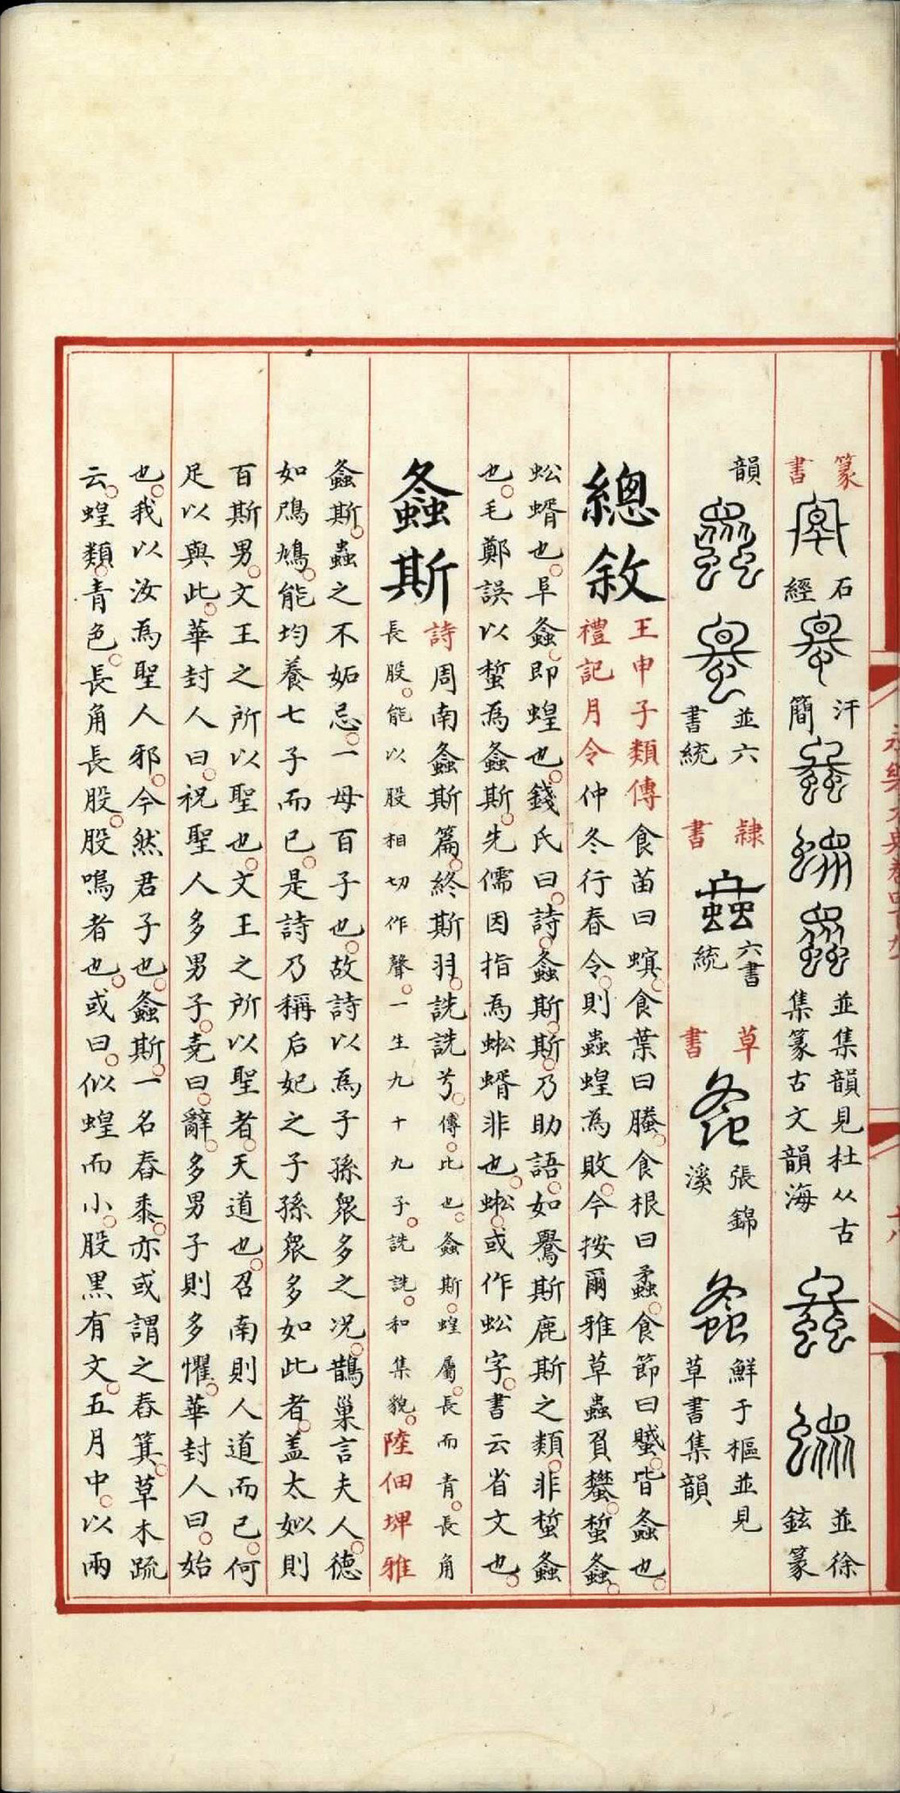 篆書 石經 汗簡 並集韻見杜从古集篆古文韻海 並徐鉉篆
韻 並六書統 隸書 六書統 草書 張錦溪 鮮于樞並見草書集韻
總敘
王申子類傳食苗曰螟。食葉曰螣。食根曰蟊。食節曰蠈。皆螽也。
禮記月令仲冬行春令。則蟲蝗為敗。今按爾雅草蟲負蠜。蜤螽。
蚣蝑也。阜螽即蝗也。錢氏曰。詩螽斯斯。乃助語。如鸒斯鹿斯之類。非蜤螽
也。毛鄭誤以蜤為螽斯。先儒因指為蜙蝑非也。蜙。或作蚣字。書云省文也。
螽斯
詩周南螽斯篇。終斯羽。詵詵兮。傳。比也。螽斯。蝗屬。長而青。長角
長股。能以股相切作聲。一生九十九子。詵詵。和集貌。陸佃埤雅
螽斯。蟲之不妬忌。一母百子也。故詩以為子孫眾多之况。鵲巢言夫人。德
如鳲鳩。能均養七子而已。是詩乃稱后妃之子孫眾多如此者。盖太姒則
百斯男。文王之所以聖也。文王之所以聖者。天道也。召南則人道而已。何
足以與此。華封人曰。祝聖人多男子。堯曰。辭。多男子則多懼。華封人曰。始
也。我以汝為聖人邪。今然君子也。螽斯。一名舂黍。亦或謂之舂箕。草木疏
云。蝗類。青色。長角長股。股鳴者也。或曰。似蝗而小。股黑有文。五月中。以兩